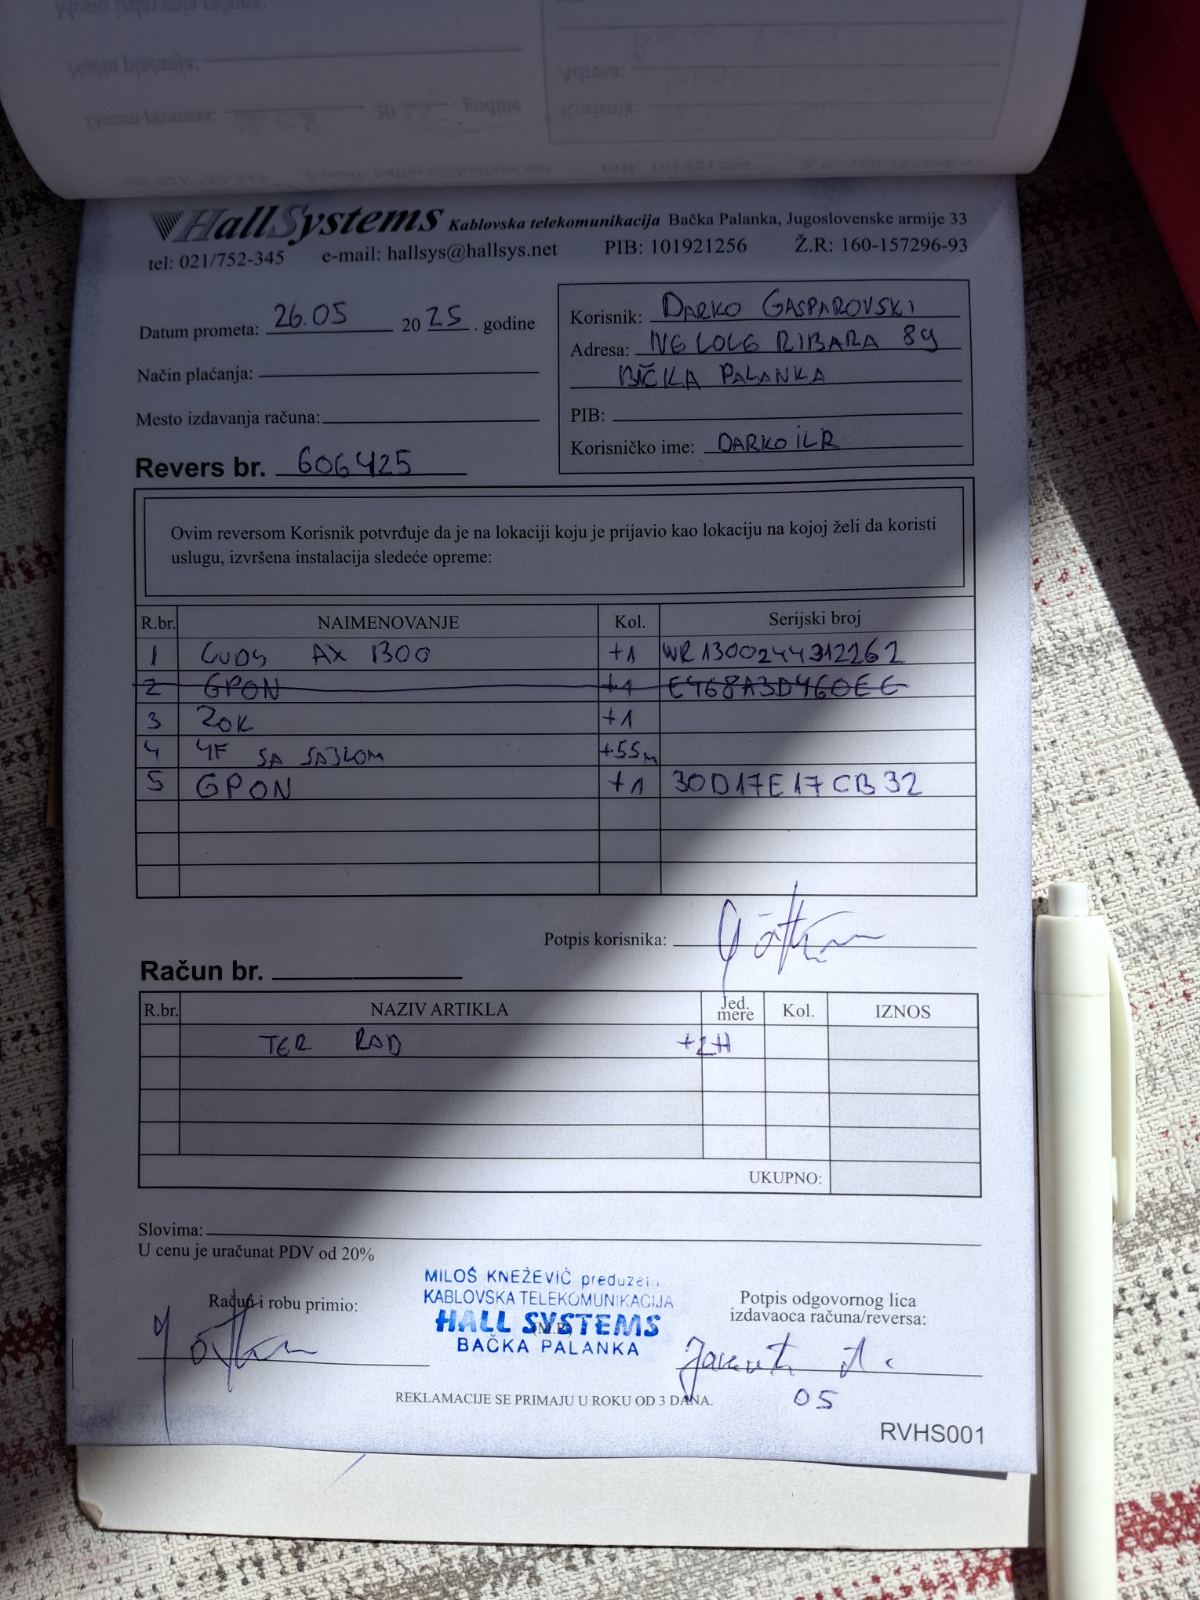 HallSystems Kablovska telekomunikacija Bačka Palanka, Jugoslovenske armije 33
tel: 021/752-345 e-mail: hallsys@hallsys.net PIB: 101921256 Ž.R: 160-157296-93
Datum prometa: 26.05 2025. godine
Način plaćanja:
Mesto izdavanja računa:
Revers br. 606425
Korisnik: DARKO GASPAROVSKI
Adresa: IVE LOLE RIBARA 89
BAČKA PALANKA
PIB:
Korisničko ime: DARKOILR
Ovim reversom Korisnik potvrđuje da je na lokaciji koju je prijavio kao lokaciju na kojoj želi da koristi
uslugu, izvršena instalacija sledeće opreme:
R.br. NAIMENOVANJE Kol. Serijski broj
1 CUDY AX 1300 +1 WR1300244312262
2 GPON +1 E468A3D460EE
3 ZOK +1
4 4F SA SAJLOM +55m
5 GPON +1 30D17E17CB32
Potpis korisnika:
Račun br.
R.br. NAZIV ARTIKLA Jed. mere Kol. IZNOS
TER RAD +2H
UKUPNO:
Slovima:
U cenu je uračunat PDV od 20%
Račun i robu primio:
MILOŠ KNEŽEVIĆ preduzet.
KABLOVSKA TELEKOMUNIKACIJA
HALL SYSTEMS
(M.P.)
BAČKA PALANKA
Potpis odgovornog lica
izdavaoca računa/reversa:
05
REKLAMACIJE SE PRIMAJU U ROKU OD 3 DANA.
RVHS001